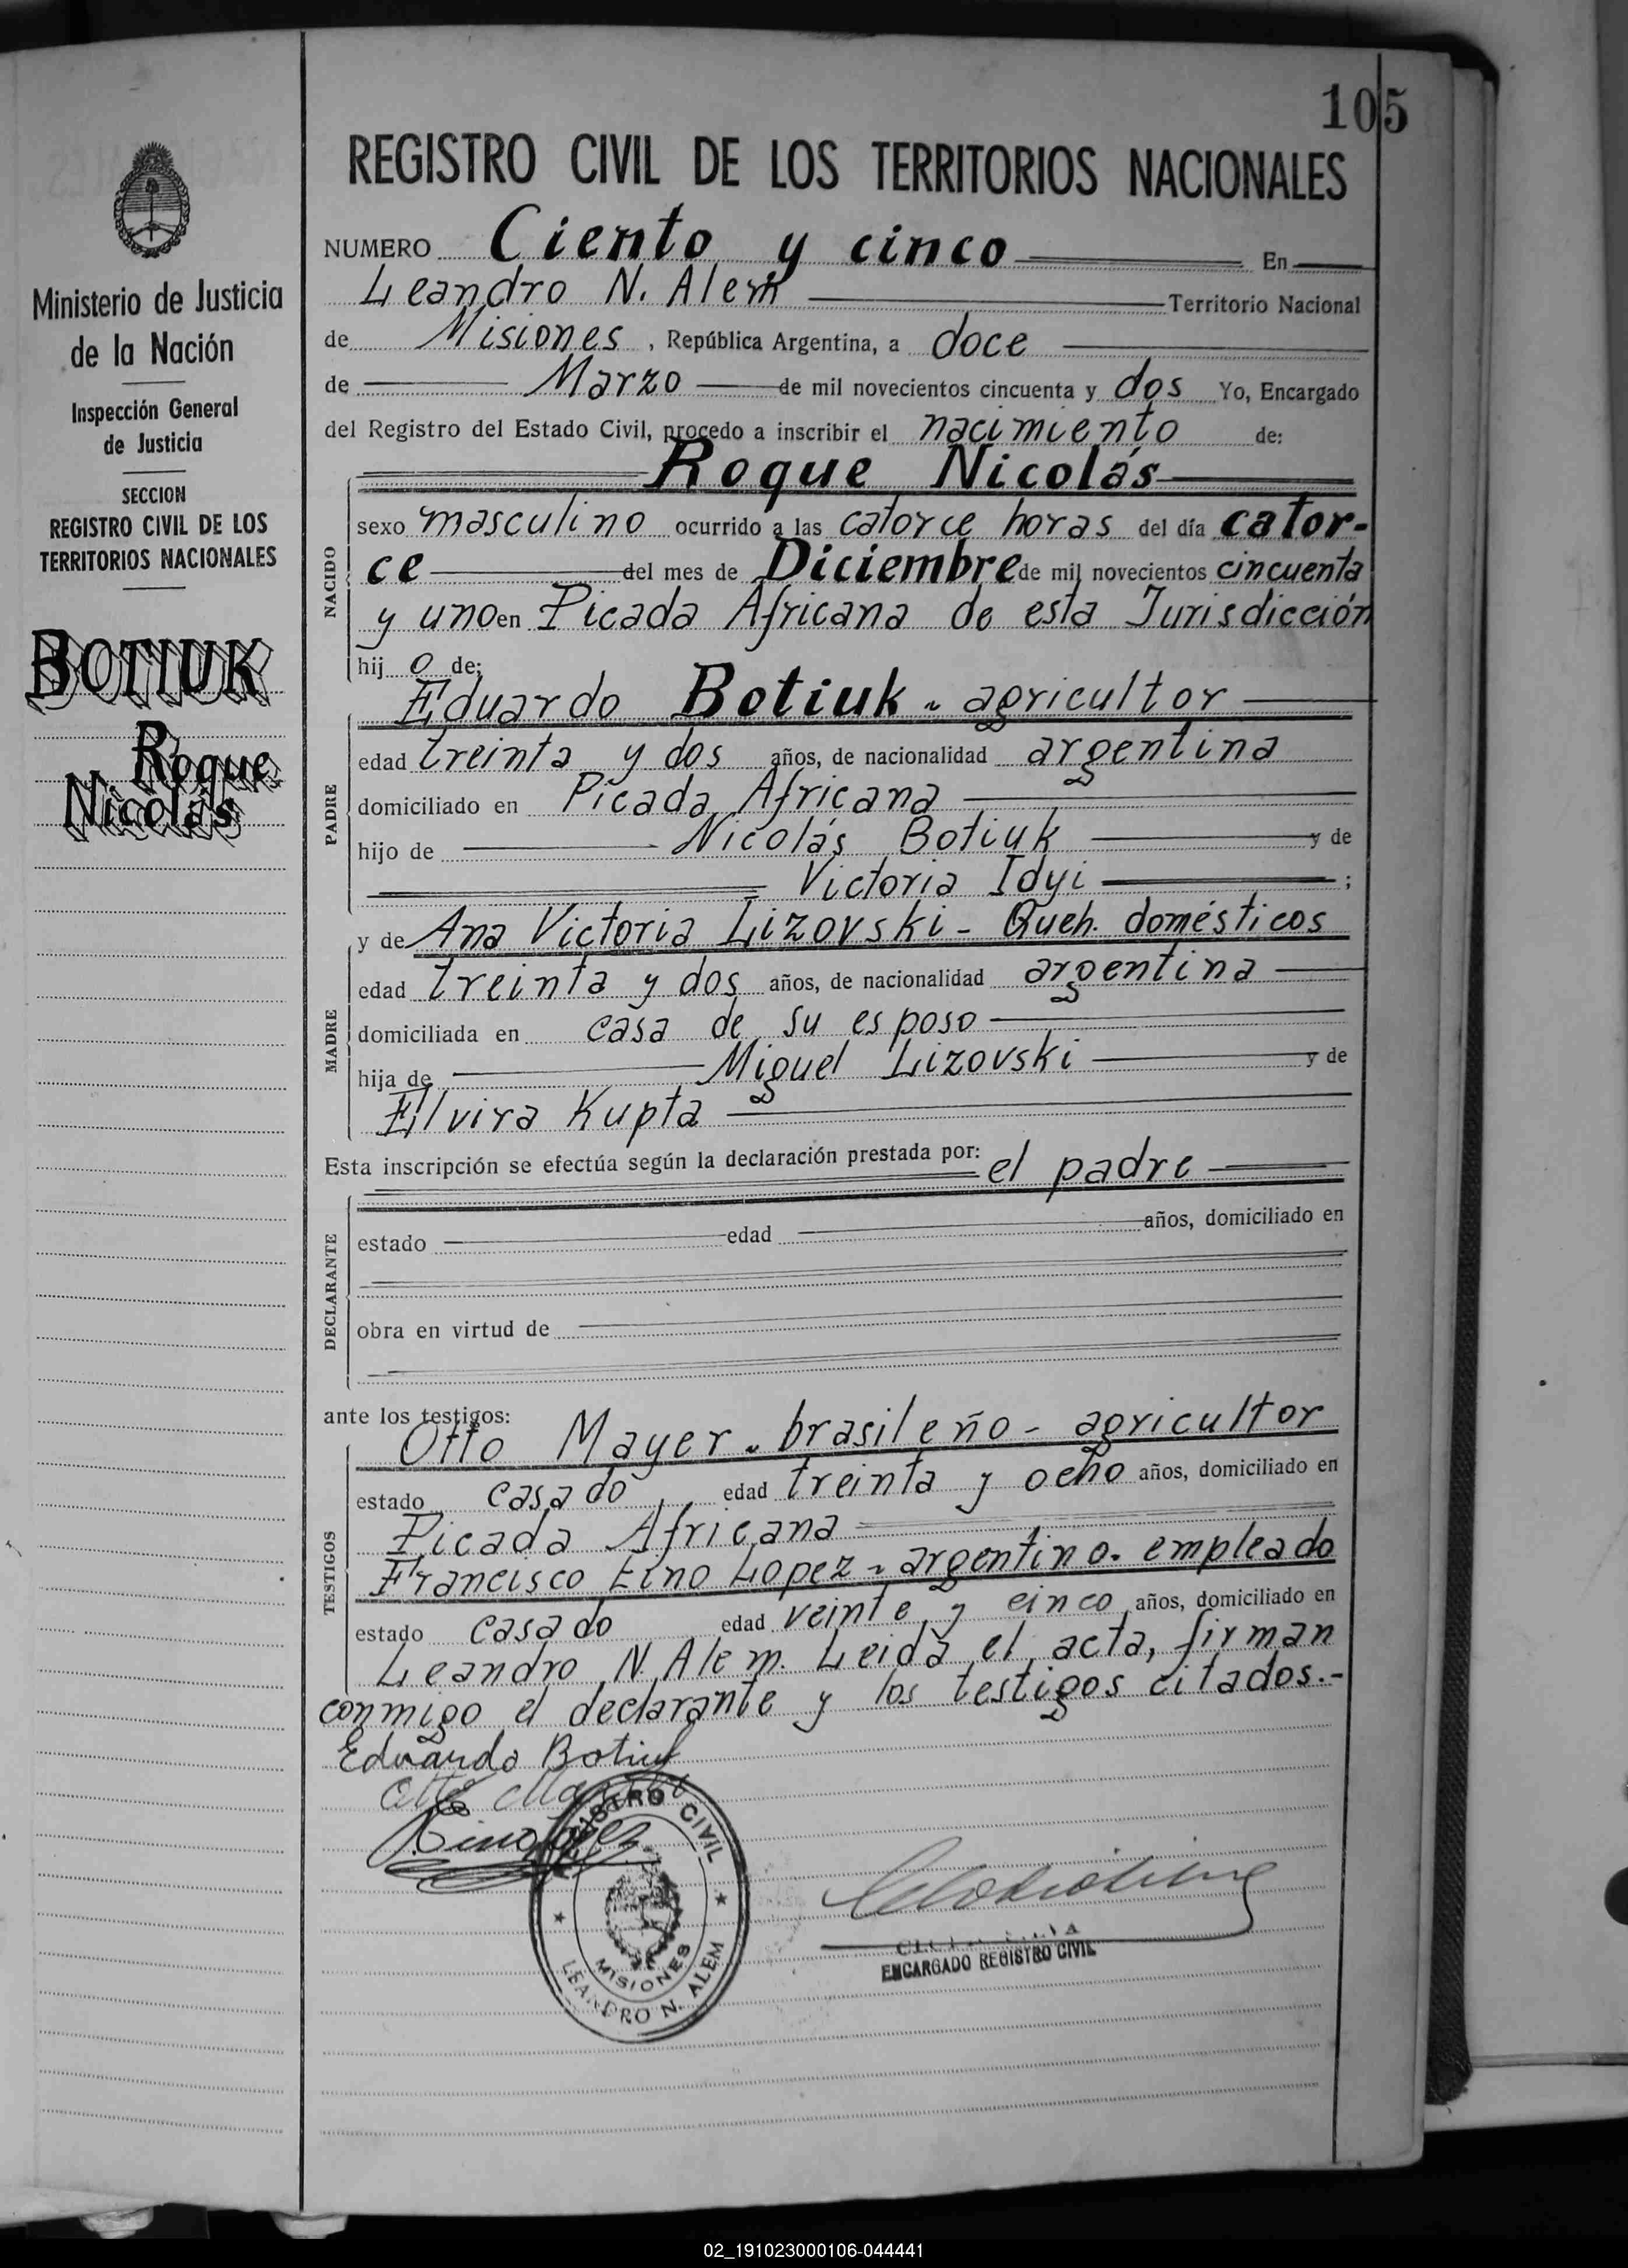 105
REGISTRO CIVIL DE LOS TERRITORIOS NACIONALES
Ministerio de Justicia
de la Nación
Inspección General
de Justicia
SECCION
REGISTRO CIVIL DE LOS
TERRITORIOS NACIONALES
BOTIUK
Roque
Nicolás
NUMERO Ciento y cinco En
Leandro N. Alem Territorio Nacional
de Misiones, República Argentina, a doce
de Marzo de mil novecientos cincuenta y dos Yo, Encargado
del Registro del Estado Civil, procedo a inscribir el nacimiento de:
Roque Nicolás
NACIDO
sexo masculino ocurrido a las catorce horas del día cator-
ce del mes de Diciembre de mil novecientos cincuenta
y uno en Picada Africana de esta Jurisdicción
hij o de:
Eduardo Botiuk - agricultor
PADRE
edad treinta y dos años, de nacionalidad argentina
domiciliado en Picada Africana
hijo de Nicolás Botiuk y de
Victoria Idyi ;
y de Ana Victoria Lizovski - Queh. domésticos
MADRE
edad treinta y dos años, de nacionalidad argentina
domiciliada en casa de su esposo
hija de Miguel Lizovski y de
Elvira Kupta
Esta inscripción se efectúa según la declaración prestada por: el padre
DECLARANTE
estado edad años, domiciliado en
obra en virtud de
ante los testigos:
Otto Mayer - brasileño - agricultor
TESTIGOS
estado casado edad treinta y ocho años, domiciliado en
Picada Africana
Francisco Lino Lopez - argentino - empleado
estado casado edad veinte y cinco años, domiciliado en
Leandro N. Alem. Leida el acta, firman
conmigo el declarante y los testigos citados.-
Eduardo Botiuk
Otto
Lino Lopez
REGISTRO CIVIL
MISIONES
LEANDRO N. ALEM
ENCARGADO REGISTRO CIVIL
02_191023000106-044441